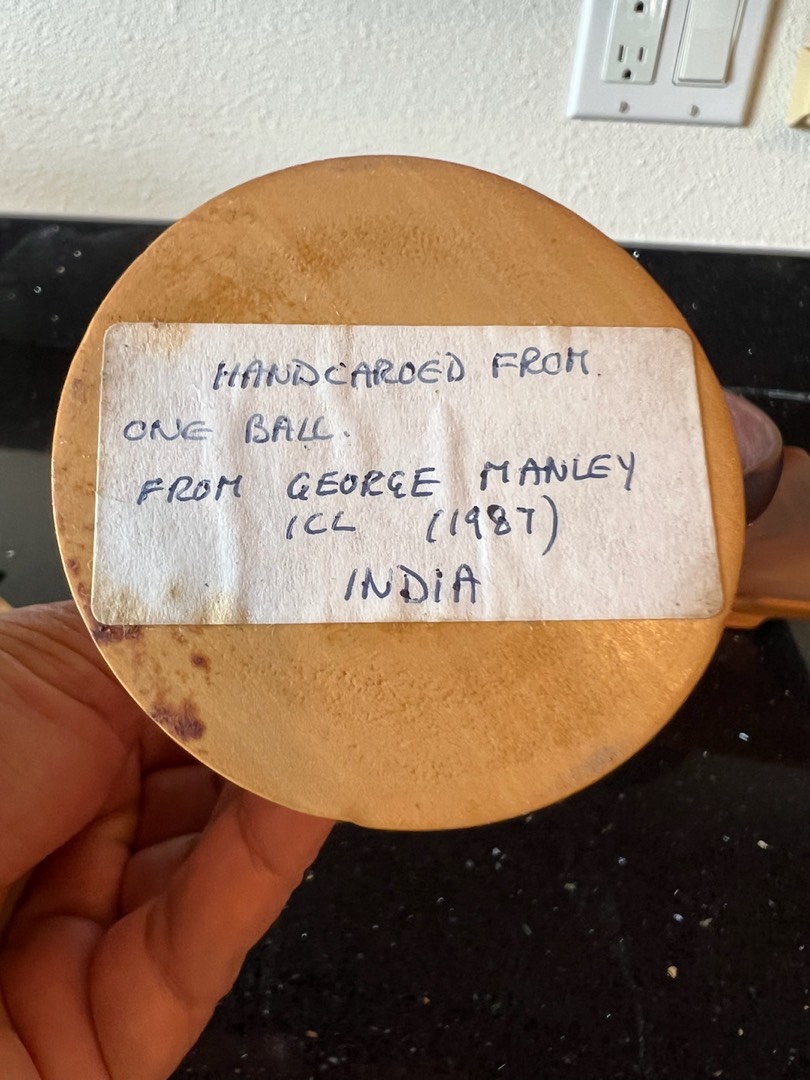 HANDCARDED FROM.
ONE BALL.
FROM GEORGE MANLEY
ICL (1987)
INDIA